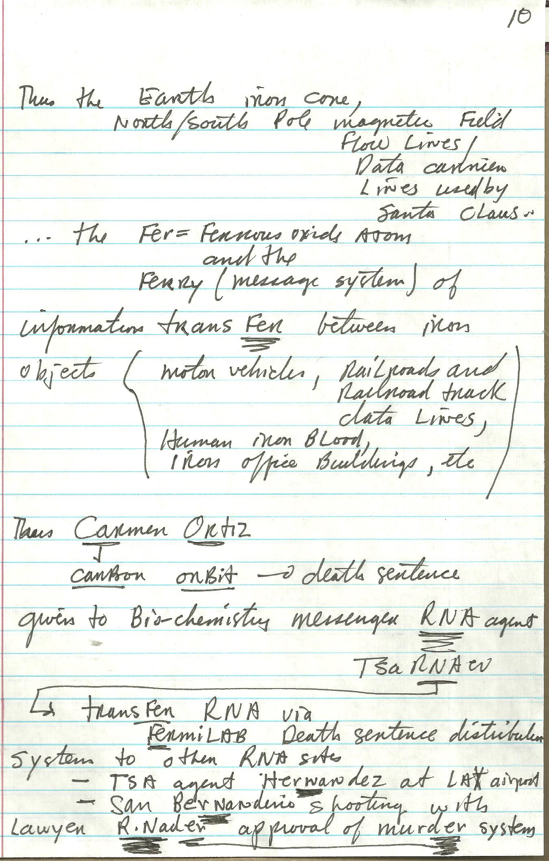 10
Thus the Earth iron core,
North/South Pole magnetic Field
Flow Lines/
Data carrier
Lines used by
Santa Claus..
... the Fer = Ferrous oxide Atom
and the
Ferry (message system) of
information trans Fer between iron
objects ( motor vehicles, Railroads and
Railroad track
data Lines,
Human iron Blood,
iron office Buildings, etc )
Thus Carmen Ortiz
carBon orBit → death sentence
given to Bio-chemistry messenger RNA agent
TsaRNAev
↳ transFer RNA via
FermiLAB Death sentence distribution
System to other RNA sites
- TSA agent Hernandez at LAX airport
- San Bernardino shooting with
Lawyer R. Nader approval of murder system